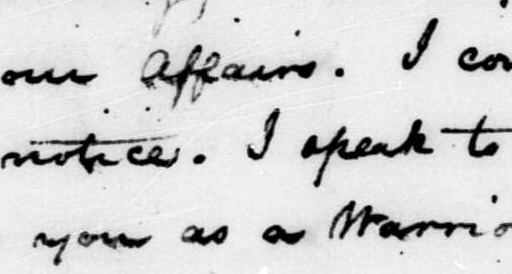 our Affairs. I con
notice. I speak to
you as a Warrio